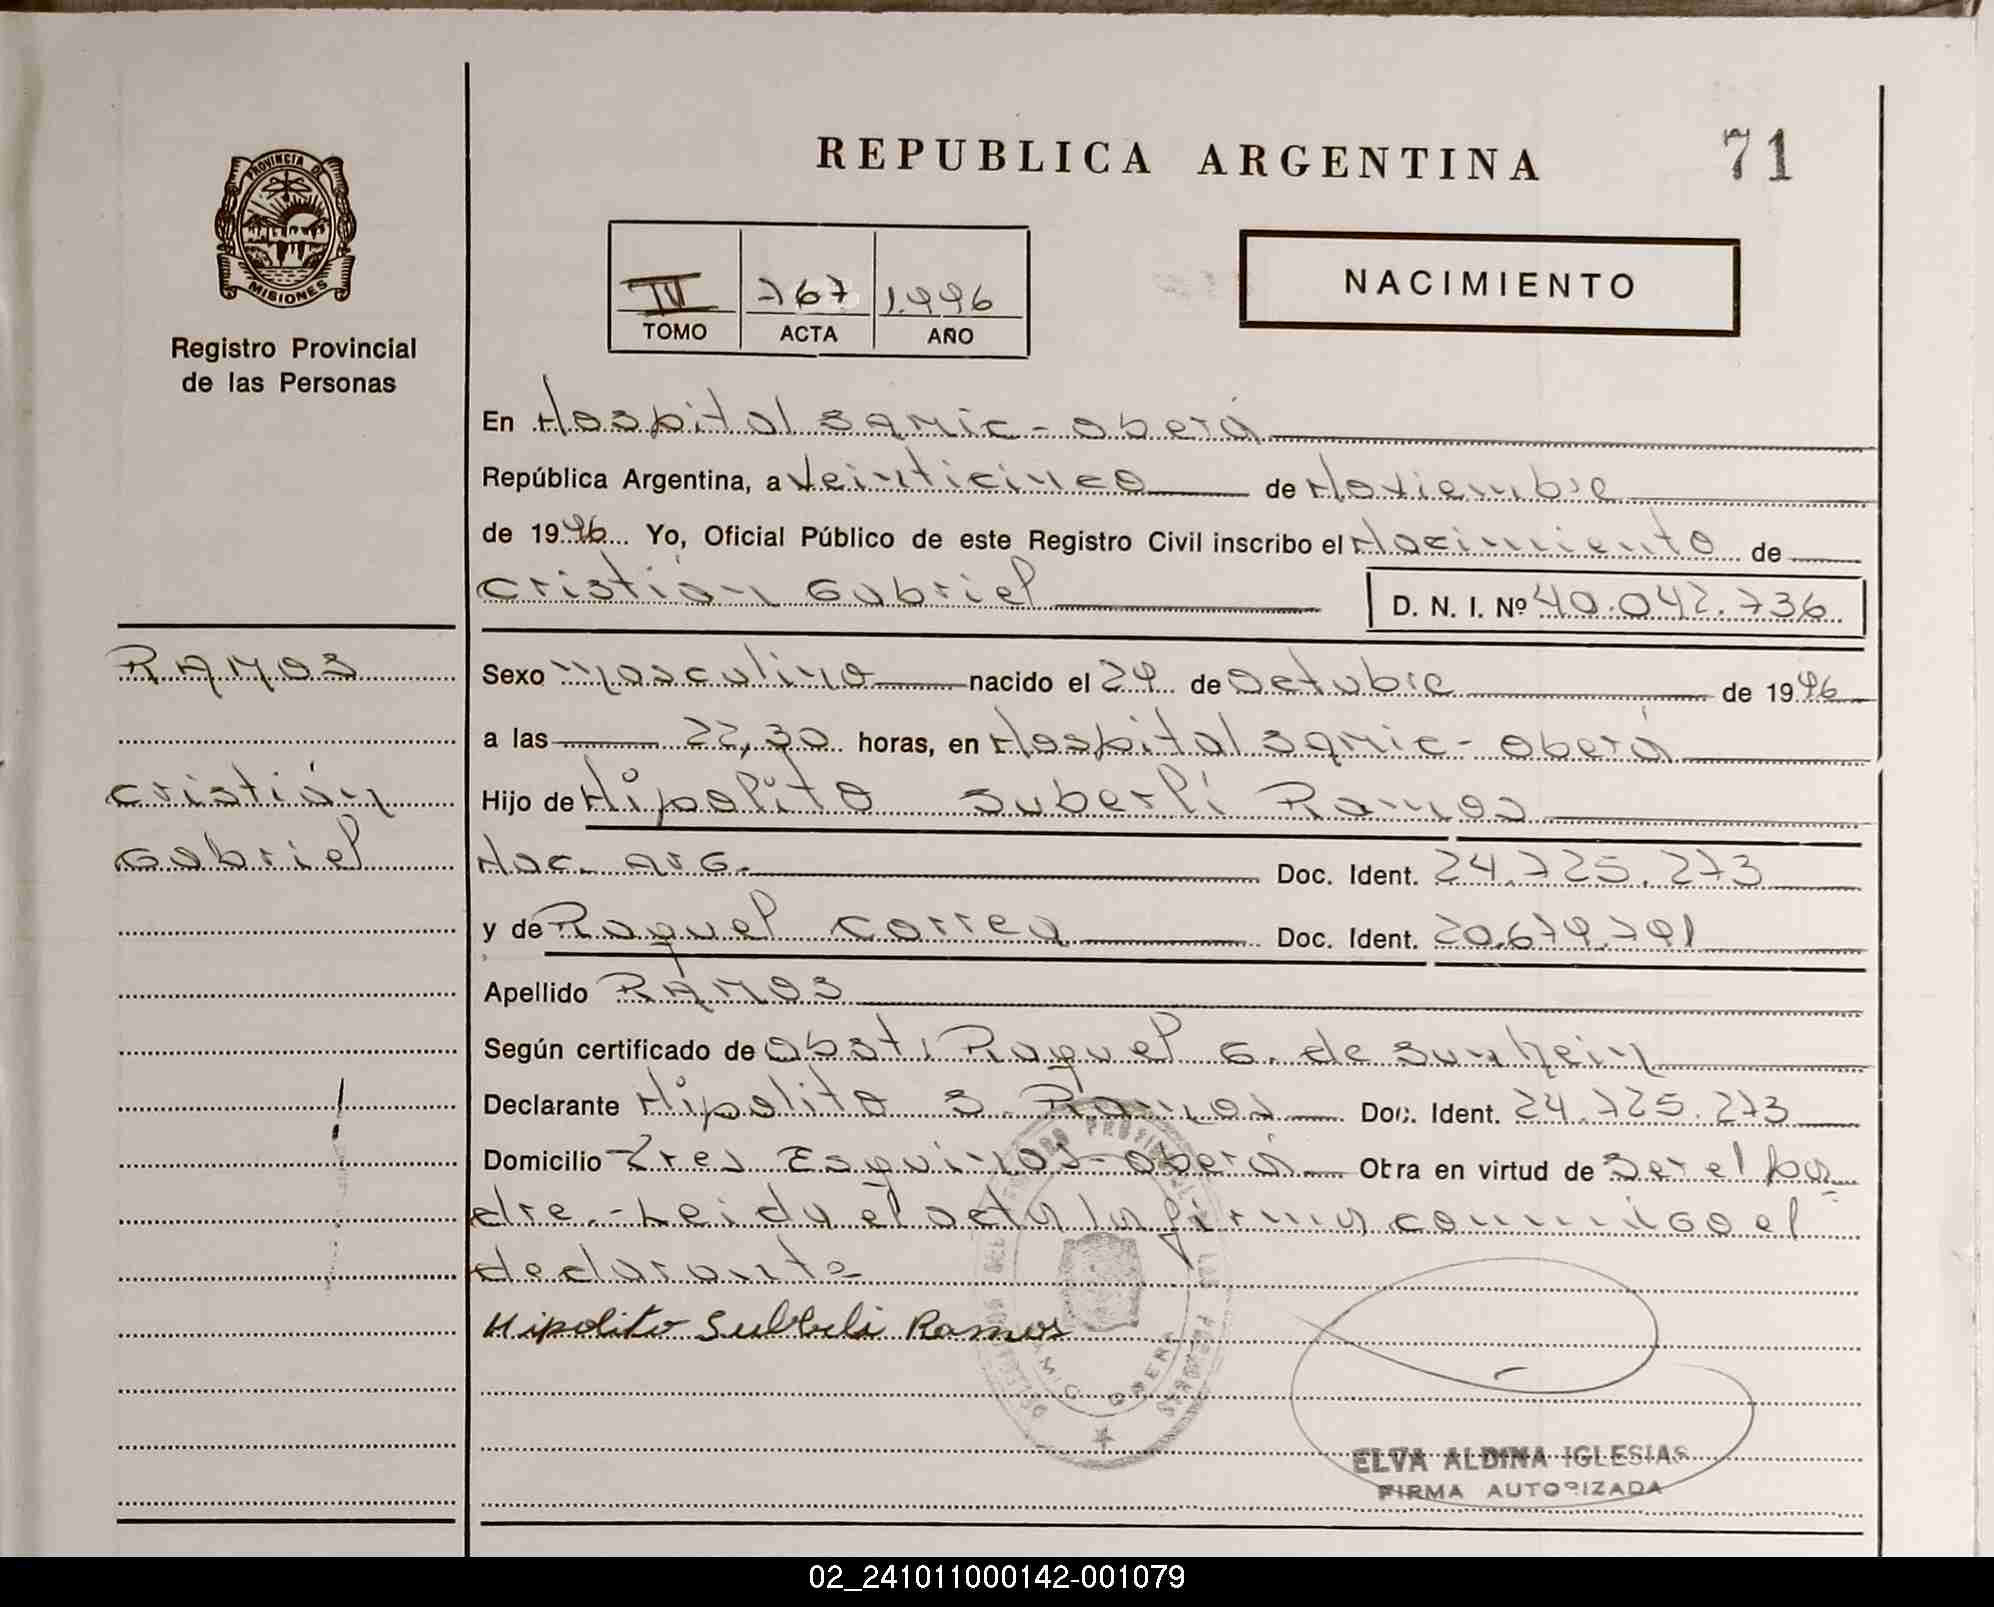 REPUBLICA ARGENTINA
71
PROVINCIA DE
MISIONES
Registro Provincial
de las Personas
IV 767 1.996
TOMO ACTA AÑO
NACIMIENTO
En Hospital Samic - Oberá
República Argentina, a Veinticinco de Noviembre
de 1996 Yo, Oficial Público de este Registro Civil inscribo el Nacimiento de
Cristián Gabriel
D. N. I. Nº 40.042.736
RAMOS
Cristián
Gabriel
Sexo Masculino nacido el 29 de Octubre de 1996
a las 22,30 horas, en Hospital Samic - Oberá
Hijo de Hipolito Suberli Ramos
Nac. Arg. Doc. Ident. 24.725.273
y de Raquel Correa Doc. Ident. 20.679.791
Apellido RAMOS
Según certificado de Obst. Raquel G. de
Declarante Hipolito S. Ramos Doc. Ident. 24.725.273
Domicilio Tres Esquinas - Oberá Obra en virtud de Ser el pa
dre.- Leida el acta la firma conmigo el
declarante
Hipolito Suberli Ramos
SAMIC OBERA
ELVA ALDINA IGLESIAS
FIRMA AUTORIZADA
02_241011000142-001079